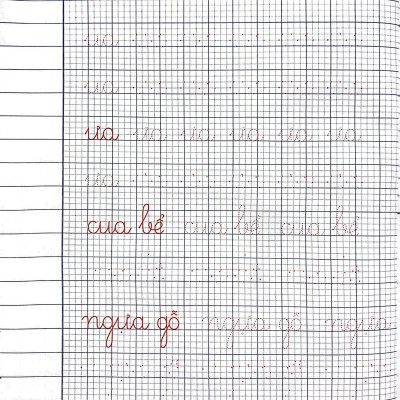 ua
ua
ưa ưa ưa ưa ưa ưa
ưa
cua bể cua bể cua bể
ngựa gỗ ngựa gỗ ngựa